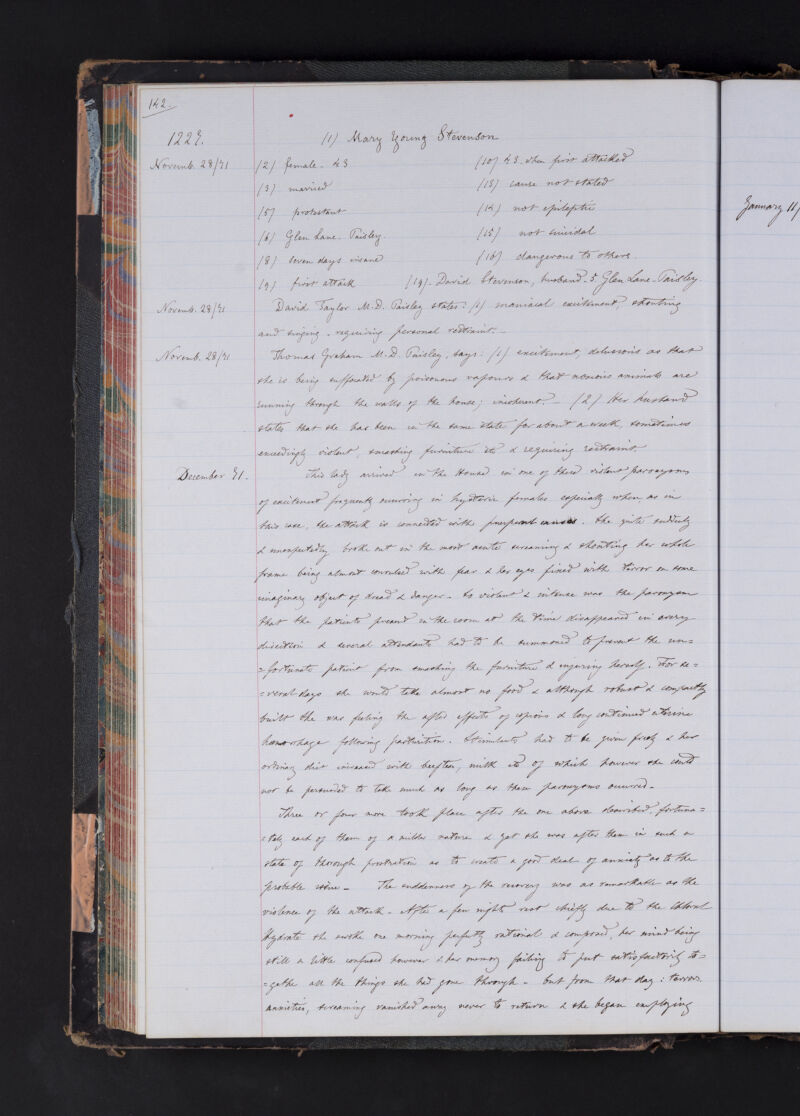 142.
1227.
(1) Mary Young Stevenson
Novemb. 28/71
(2) female - 43
(10) 43. when first attacked
(3) married
(13) cause not stated
(5) protestant
(14) not epileptic
(6) Glen Lane - Paisley
(15) not suicidal
(8) seven days insane
(16) dangerous to others.
(9) first attack
(19). David Stevenson, husband. 5. Glen Lane - Paisley.
Novemb. 28/71
David Taylor M.D. Paisley states: (1) maniacal excitement, shouting
and singing - requiring personal restraint. -
Novemb. 28/71
Thomas Graham M.D. Paisley, says: (1) excitement, delusions as that
she is being suffocated by poisonous vapours & that noxious animals are
running through the walls of the house; incoherent. - (2) Her husband
states that she has been in the same state for about a week, sometimes
exceedingly violent, smashing furniture etc & requiring restraint.
December 71.
This lady arrived in the House in one of those violent paroxysms
of excitement frequently occurring in hysteric females especially when, as in
this case, the attack is connected with puerperal causes. She quite suddenly
& unexpectedly broke out in the most acute screaming & shouting her whole
frame being almost convulsed with fear & her eyes fixed with terror on some
imaginary object of dread & danger - So violent & intense was the paroxysm
that the patients present in the room at the time disappeared in every
direction & several attendants had to be summoned to prevent the un=
=fortunate patient from smashing the furniture & injuring herself. For se=
=veral days she would take almost no food & although robust & compactly
built she was feeling the after effects of copious & long continued uterine
hemorrhage following parturition. Stimulants had to be given freely & her
ordinary diet increased with beeftea, milk etc of which however she could
not be persuaded to take much as long as these paroxysms occurred. -
Three or four more took place after the one above described, fortuna=
=tely each of them of a milder nature & yet she was after them in such a
state of thorough prostration as to create a good deal of anxiety as to the
probable issue - The suddenness of the recovery was as remarkable as the
violence of the attack - After a few nights rest chiefly due to the Chloral
Hydrate she awoke one morning perfectly rational & composed, her mind being
still a little confused however & her memory failing to put satisfactorily to=
=gethe all the things she had gone through - but from that day: terror
anxieties, screaming vanished away never to return & she began employing
January 11/